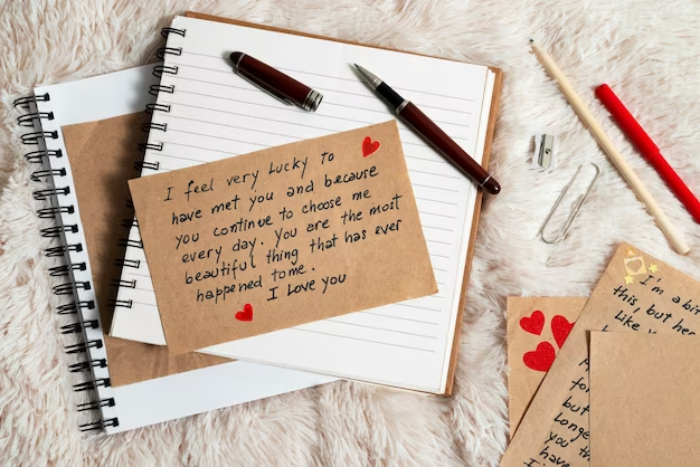 I feel very Lucky to
have met you and because
you continue to choose me
every day. You are the most
beautiful thing that has ever
happened to me.
I Love you
I'm a bit
this, but her
Like
but
Longe
you th
I have